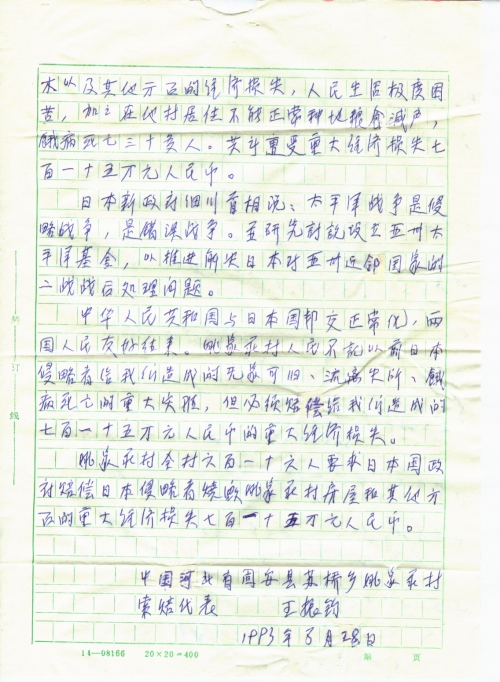 木以及其他方面的经济损失，人民生活极度困
苦，加之在他村居住不能正常种地粮食减产，
饿病死七三十多人。共计遭受重大经济损失七
百一十五万元人民币。
日本新政府细川首相说：太平洋战争是侵
略战争，是错误战争。并研究讨论设立亚州太
平洋基金，以推进解决日本对亚州近邻国家的
二战战后处理问题。
中华人民共和国与日本国邦交正常化，两
国人民友好往来。村人民不记以前日本
侵略者给我们造成的无家可归、流离失所、饿
病死亡的重大失难，但必须赔偿给我们造成的
七百一十五万元人民币的重大经济损失。
村全村六百一十六人要求日本国政
府赔偿日本侵略者烧毁村房屋和其他方
面的重大经济损失七百一十五万元人民币。
中国河北省固安县苏桥乡村
索赔代表 王振钧
1993年8月28日
14—08166 20×20=400
第 页
装 订 线